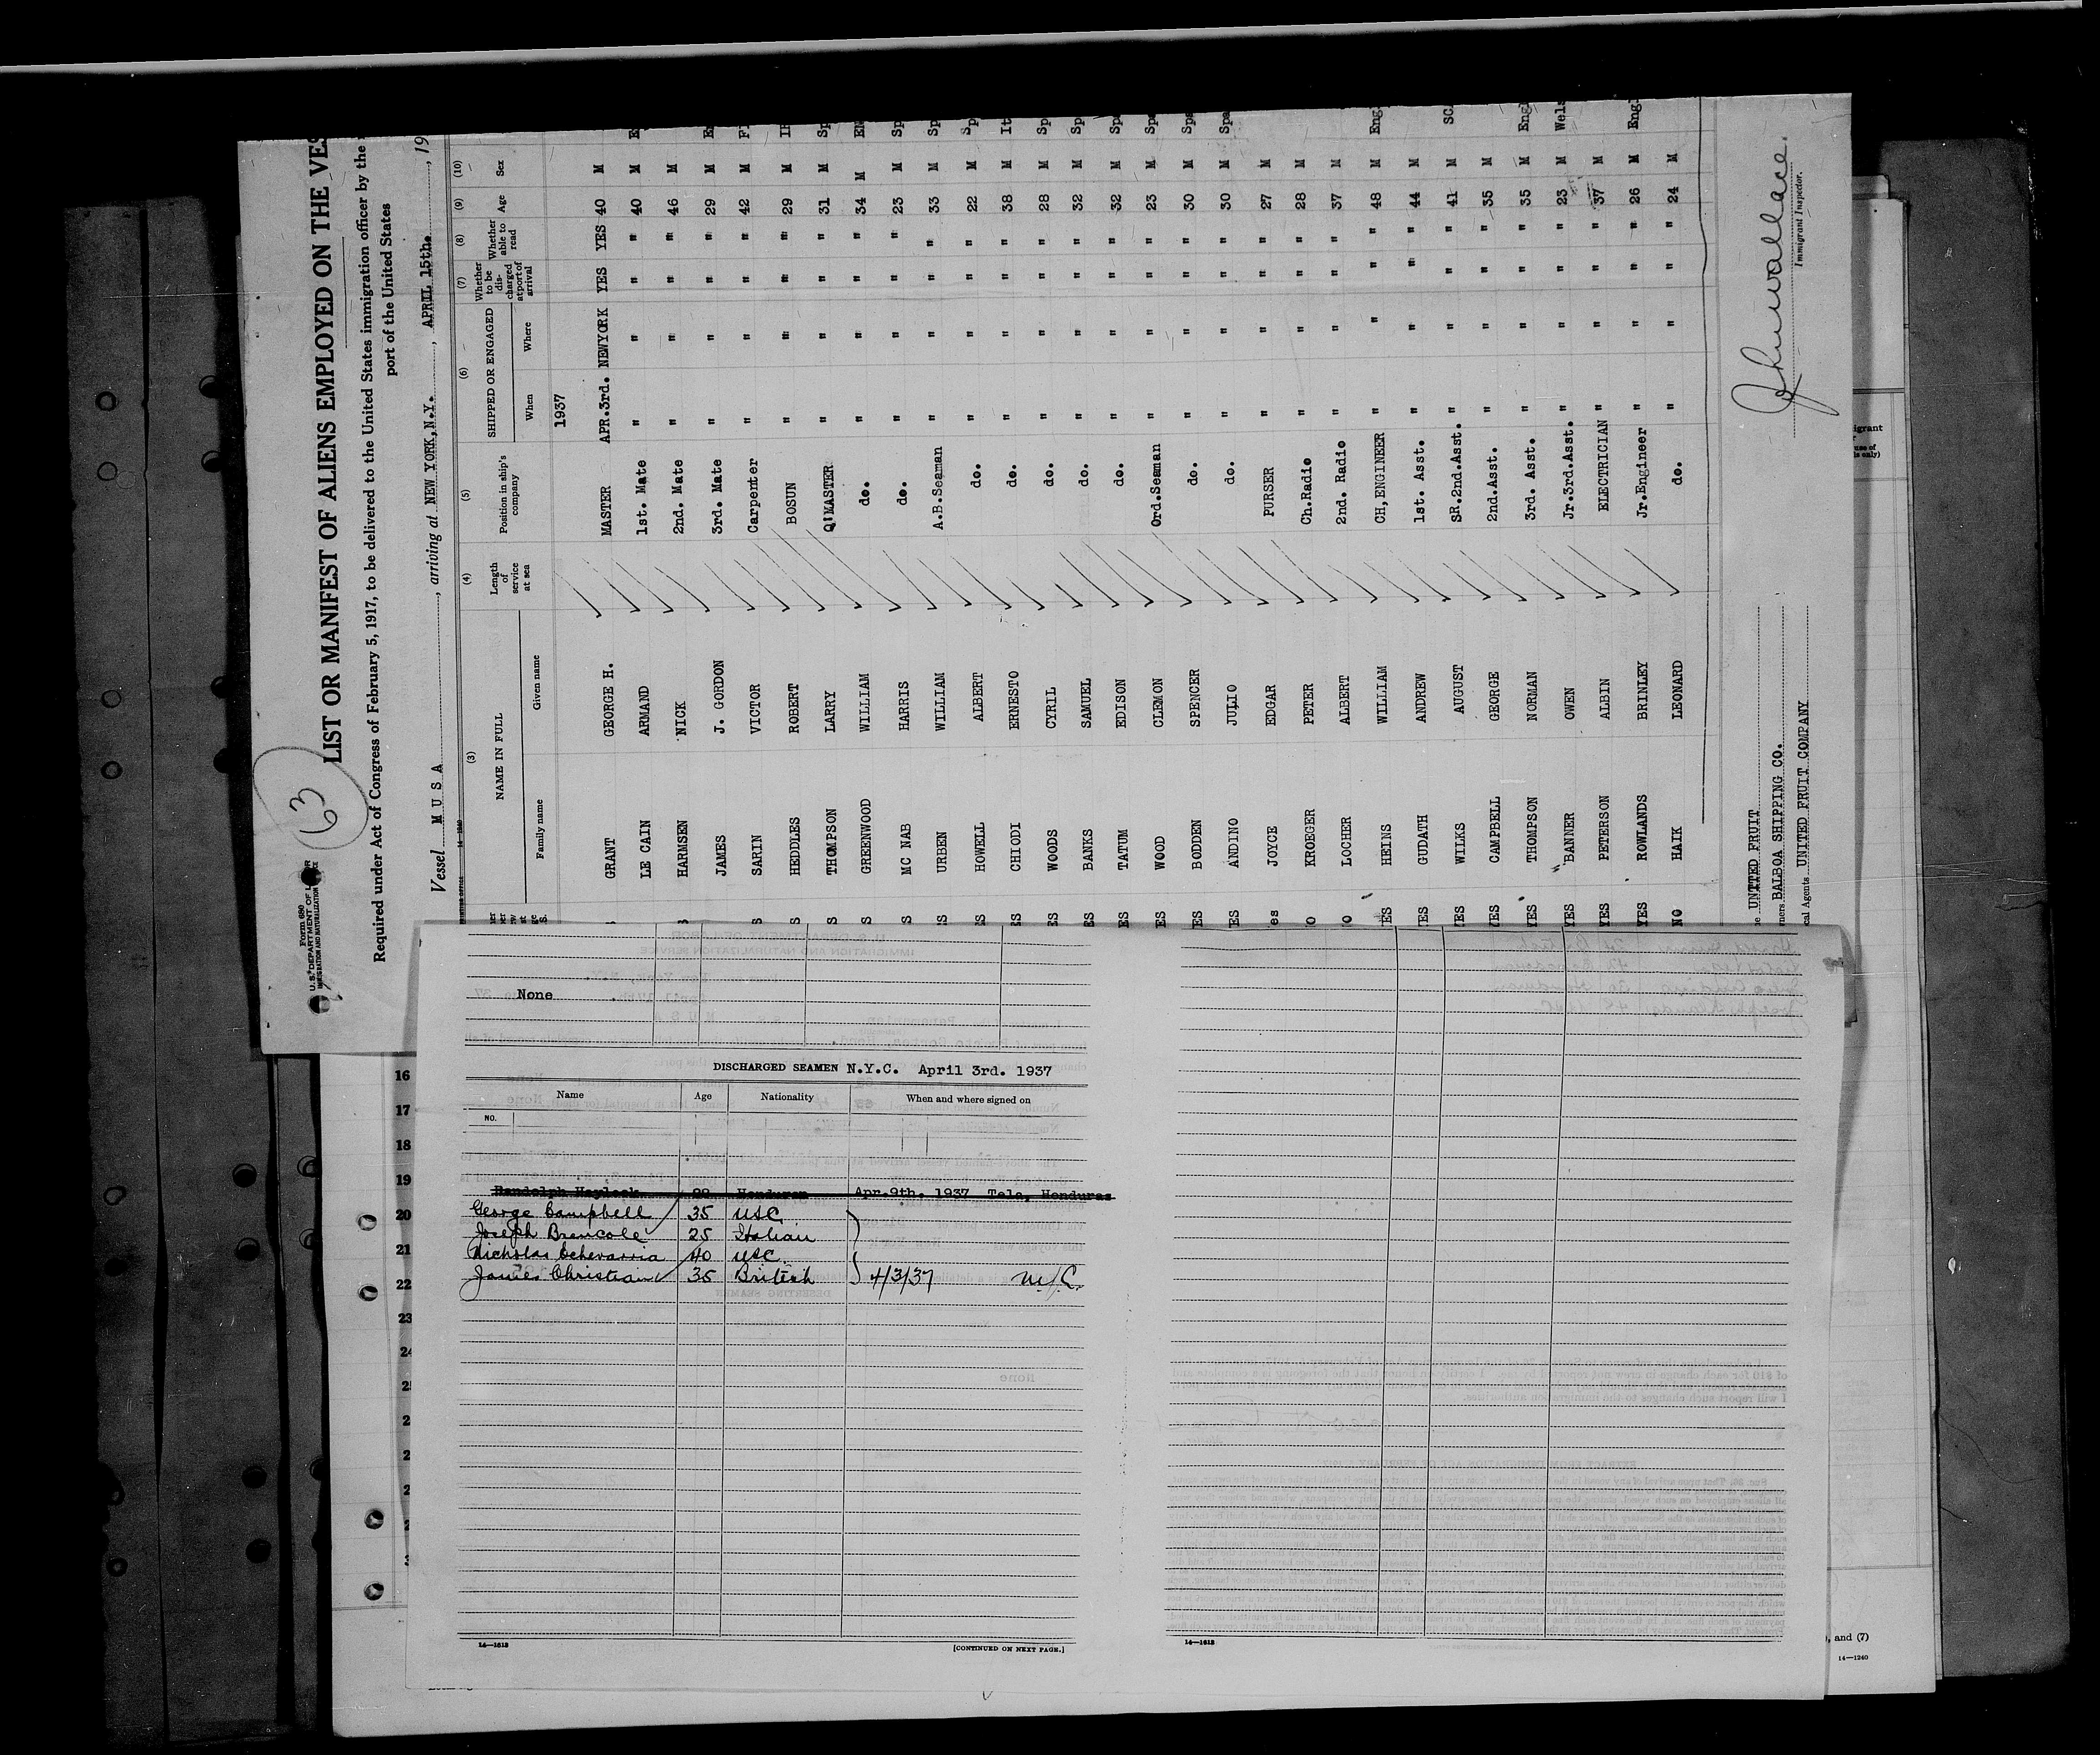 Form 680
U.S. DEPARTMENT OF
IMMIGRATION AND NATURALIZATION
63
LIST OR MANIFEST OF ALIENS EMPLOYED ON THE VES
Required under Act of Congress of February 5, 1917, to be delivered to the United States immigration officer by the
port of the United States
Vessel M U S A, arriving at NEW YORK, N.Y., APRIL 15th., 19
(3) (4) (5) (6) (7) (8) (9) (10)
NAME IN FULL Length of service at sea Position in ship's company SHIPPED OR ENGAGED Whether to be discharged at port of arrival Whether able to read Age Sex
Family name Given name When Where
1937
GRANT GEORGE H. MASTER APR.3rd. NEWYORK YES YES 40 M
LE CAIN ARMAND 1st. Mate " " " " 40 M E
HARMSEN NICK 2nd. Mate " " " " 46 M
JAMES J. GORDON 3rd. Mate " " " " 29 M E
S SARIN VICTOR Carpenter " " " " 42 M FI
S HEDDLES ROBERT BOSUN " " " " 29 M IR
S THOMPSON LARRY Q'MASTER " " " " 31 M Sp
S GREENWOOD WILLIAM do. " " " " 34 M EN
S MC NAB HARRIS do. " " " " 23 M Sp
ES URBEN WILLIAM A.B.Seaman " " " " 33 M Sp
ES HOWELL ALBERT do. " " " " 22 M Sp
ES CHIODI ERNESTO do. " " " " 38 M It
ES WOODS CYRIL do. " " " " 28 M Sp
ES BANKS SAMUEL do. " " " " 32 M Sp
ES TATUM EDISON do. " " " " 32 M Sp
ES WOOD CLEMON Ord.Seaman " " " " 23 M Spa
ES BODDEN SPENCER do. " " " " 30 M Spa
ES ANDINO JULIO do. " " " " 30 M Spa
es JOYCE EDGAR PURSER " " " " 27 M
O KROEGER PETER Ch.Radio " " " " 28 M
O LOCHER ALBERT 2nd. Radio " " " " 37 M
YES HEINS WILLIAM CH,ENGINEER " " " " 48 M Eng
YES GUDATH ANDREW 1st. Asst. " " " " 44 M
YES WILKS AUGUST SR.2nd.Asst. " " " " 41 M SC
YES CAMPBELL GEORGE 2nd.Asst. " " " " 35 M
YES THOMPSON NORMAN 3rd. Asst. " " " " 35 M Engl
YES BANNER OWEN Jr.3rd.Asst. " " " " 23 M Wels
YES PETERSON ALBIN ELECTRICIAN " " " " 37 M
YES ROWLANDS BRINLEY Jr.Engineer " " " " 26 M Engl
NO HAIK LEONARD do. " " " " 24 M
UNITED FRUIT
BALBOA SHIPPING CO.
cal Agents UNITED FRUIT COMPANY
Immigrant Inspector.
None
DISCHARGED SEAMEN N.Y.C. April 3rd. 1937
Name Age Nationality When and where signed on
NO.
Randolph Haylock 22 Honduran Apr.9th. 1937 Tela, Honduras
George Campbell 35 USC
Joseph Brencole 25 Italian
Nicholas Echevarria 40 USC
James Christian 35 British 4/3/37 NYC
14—1613
[CONTINUED ON NEXT PAGE.]
14—1613
16
17
18
19
20
21
22
23
, and (7)
14—1240